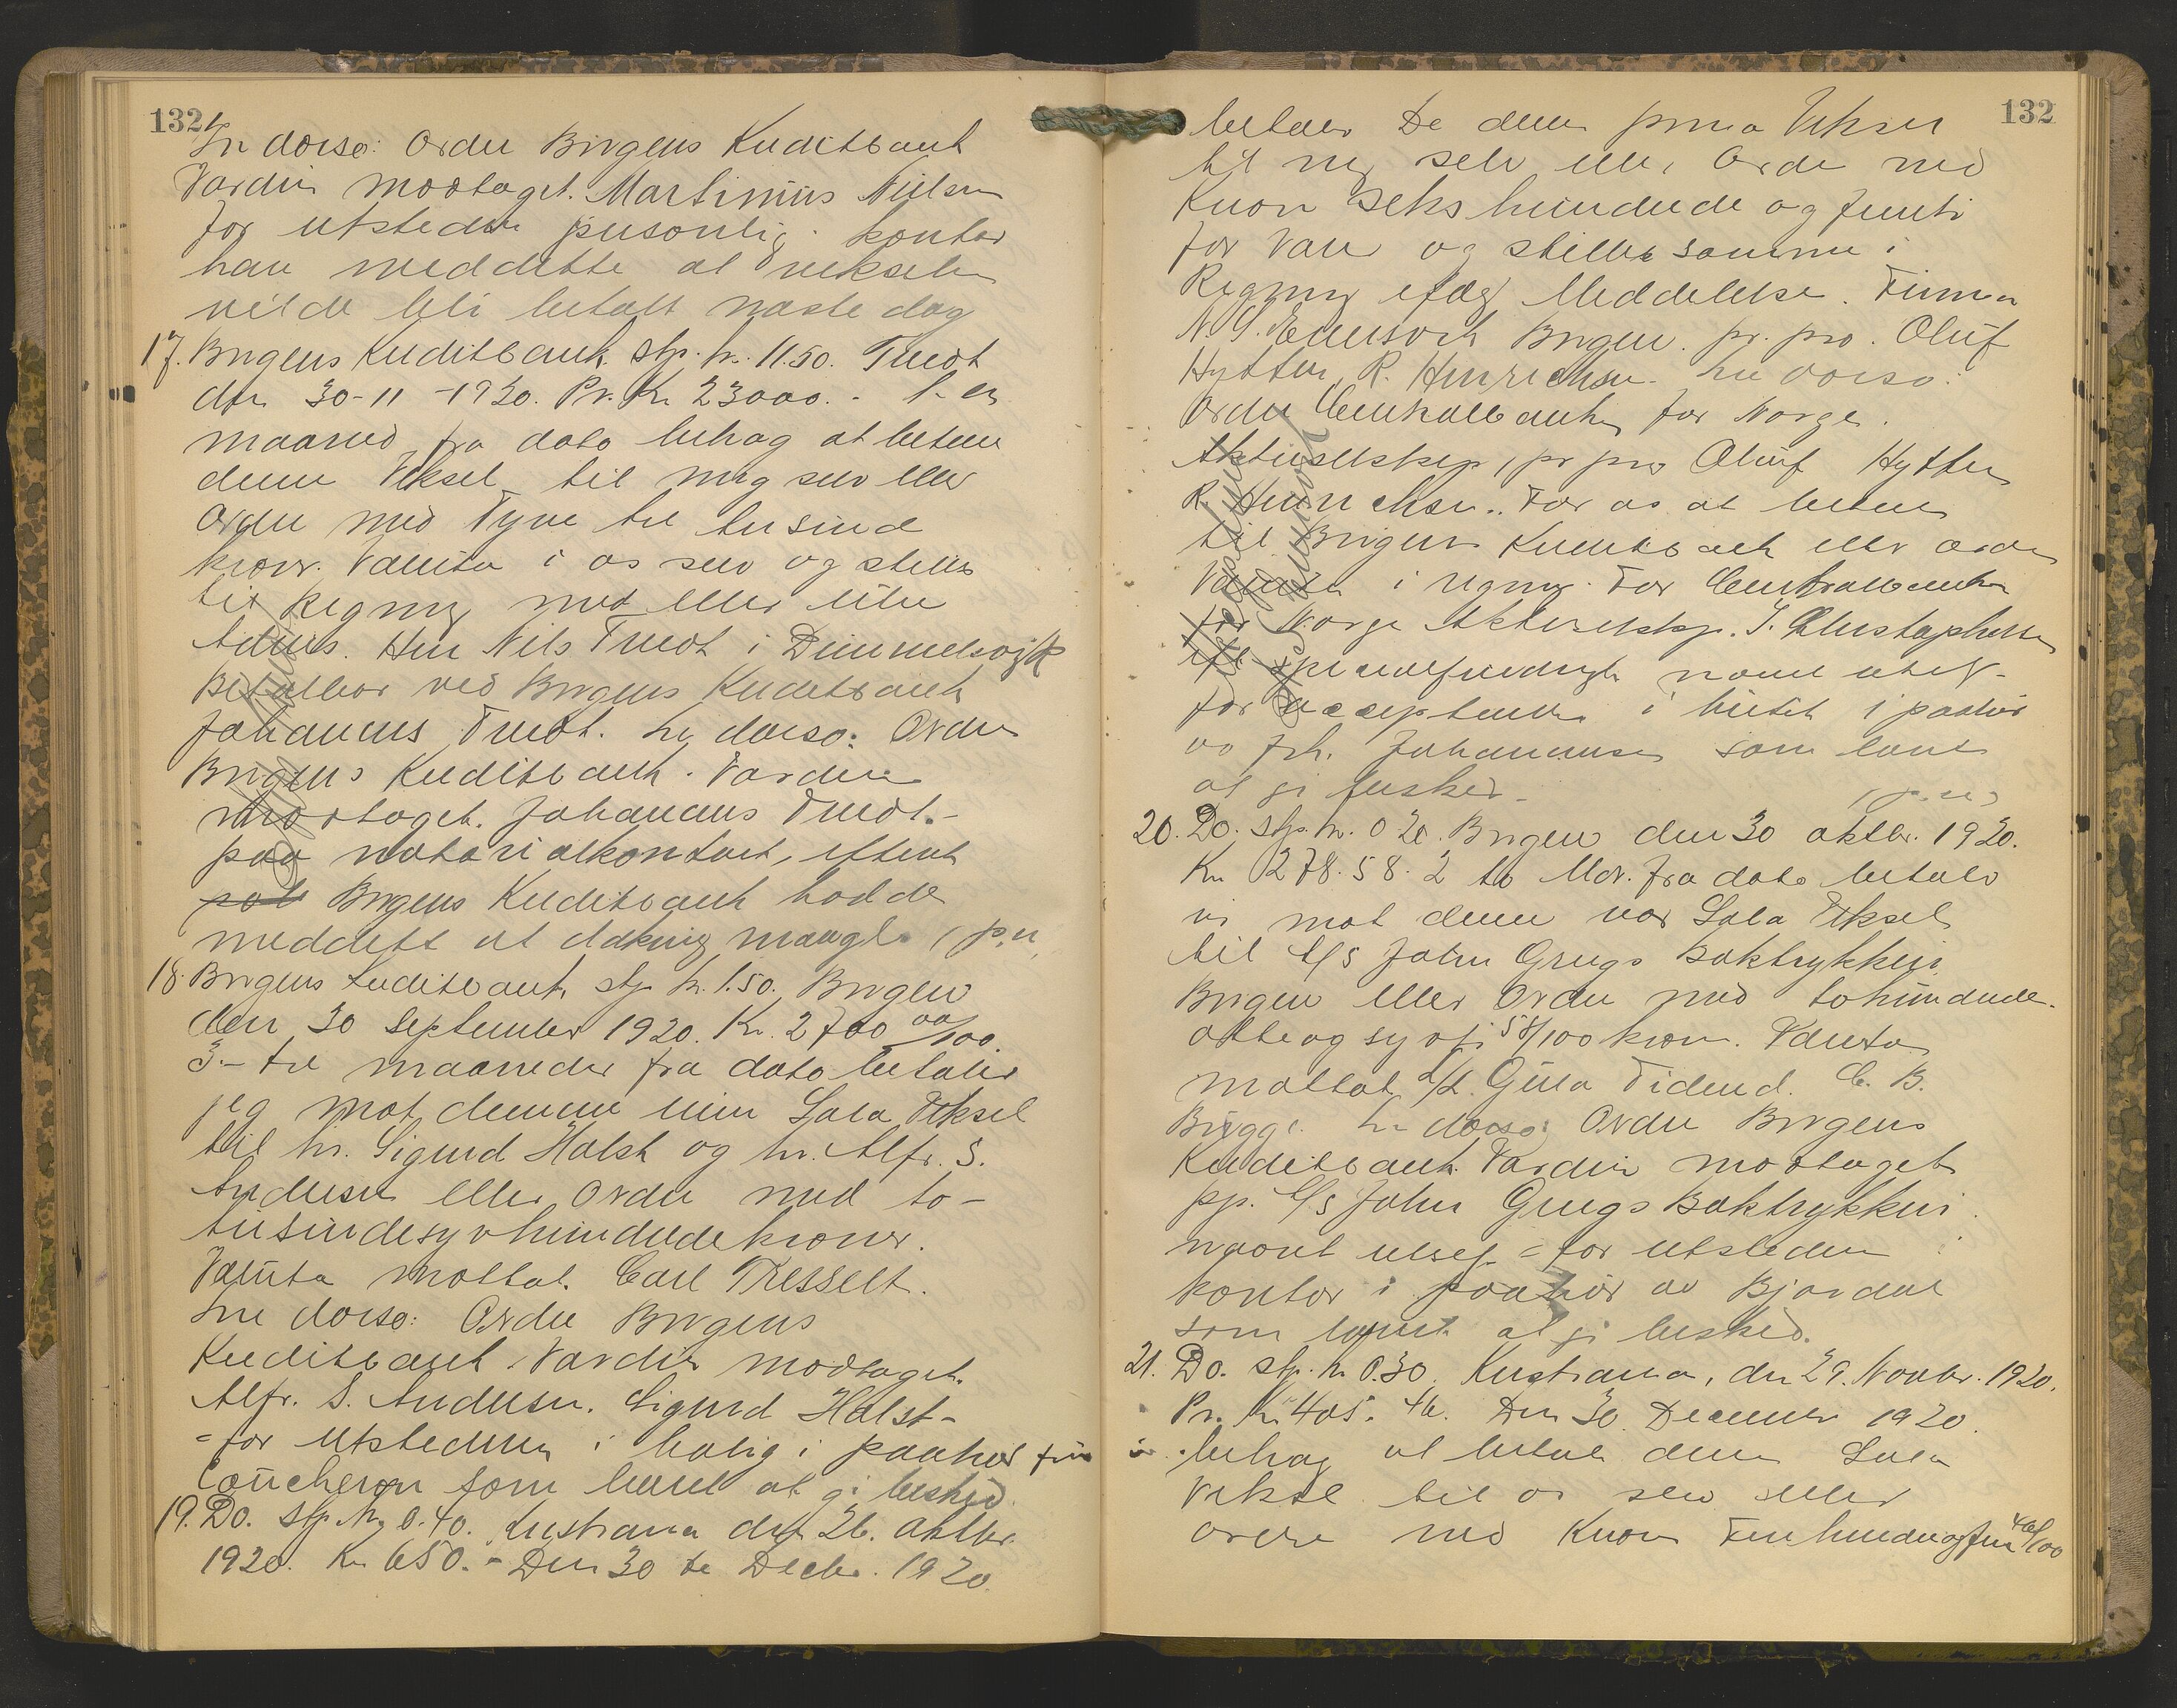 132
In dorso: Ordre Bergens Kreditbank
Værdien modtaget. Martinius Nielsen
for utstederen personlig kontor
han meddelte at vekselen
vilde bli betalt næste dag
17. Bergens Kreditbank. stp. kr. 11.50. Tuedt
den 30-11-1920. Pr. Kr. 23000.- 1- en
maaned fra dato behag at betale
denne Veksel til mig selv eller
Ordre med Tyve tre tusind
kroner. Valuta i os selv og stilles
til Regning med eller uten
Advis. Herr Nils Tuedt i
Betalbar ved Bergens Kreditbank
Johannes Tuedt. In dorso: Ordre
Bergens Kreditbank. Værdien
modtaget. Johannes Tuedt.-
paa notarialkontoret, eftersom
Bergens Kreditbank hadde
meddelt at dækning mangler (p.n.
18. Bergens Kreditbank stp. kr. 1.50. Bergen
den 30 September 1920. Kr. 2700 00/100.
3.- tre maaneder fra dato betaler
jeg mot denne min Sola Veksel
til hr. Sigurd Halst og hr. Alfr. S.
Andersen eller Ordre med to-
tusindesyvhundrede kroner.
Valuta mottat. Carl Tresselt.
In dorso: Ordre Bergens
Kreditbank. Værdien modtaget.
Alfr. S. Andersen. Sigurd Halst-
-for utstederen i bolig i paahør fru
Coucheron som lovet at gi besked.
19. Do. stp. kr. 0.40. Kristiania den 26. Oktbr.
1920. Kr. 650.- Den 30 te Decbr. 1920
132
betaler De denne prima Veksel
til mig selv eller Ordre med
Kroner Seks hundrede og femti
for Varer og stiller samme i
Regning efter Meddelelse. Firma
Bergen. pr. pro. Oluf
Hytten R. Henrichsen. In dorso:
Ordre Centralbanken for Norge.
Aktieselskap, pr pro Oluf Hytten
R. Henrichsen.. For os at betale
til Bergens Kreditbank eller ordre
Valuta i regning. For Centralbanken
for Norge Aktieselskap. J. Christophersen
efter specialfuldmagt
for acceptanten i butik i paahør
av frk. Johannesen som lovet
at gi besked- (p.n.)
20. Do. stp. kr. 0.20. Bergen den 30 oktbr. 1920.
Kr. 278.58. 2 to Mdr. fra dato betaler
vi mot denne vor Sola Veksel
til A/S John Griegs Boktrykkeri
Bergen eller Ordre med tohundrede-
otteogsyvti 58/100 kroner. Valuta
mottat a/l. Gula Tidend. C. B.
Brygge. In dorso: Ordre Bergens
Kreditbank. Værdien modtaget
pp. A/S John Griegs Boktrykkeri.
-for utstederen i
kontor i paahør av Bjordal
som lovet at gi besked.
21. Do. stp. kr. 0.30. Kristiania, den 29. Novbr. 1920.
Pr. Kr. 405.46. Den 30. December 1920
behag at betale denne Sola
Veksel til os selv eller
ordre med Kroner Firehundreogfem 46/100